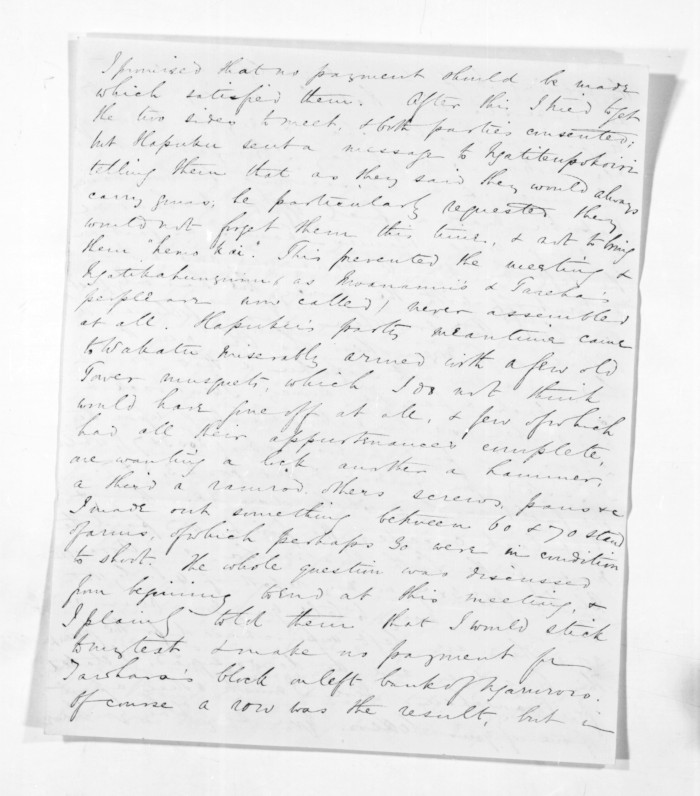 I promised that no payment should be made
which satisfied them. After this I tried to get
the two sides to meet, & both parties consented;
but Hapuku sent a message to Ngatiteupokoiri
telling them that as they said they would always
carry guns, he particularly requested they
would not forget them this time, & not to bring
them "hemo kai". This prevented the meeting &
Ngatikahungunu, as Moananui's & Tareha's
people are now "called", never assembled
at all. Hapuku's party meantime came
to Wakatu miserably armed with a few old
Tower musquets, which I do not think
would have gone off at all, & few of which
had all their appurtenances complete,
one wanting a lock another a hammer,
a third a ramrod, others screws, pans &c
I made out something between 60 & 70 stand
of arms, of which perhaps 30 were in condition
to shoot. The whole question was discussed
from begining to end at this meeting, &
I plainly told them that I would stick
to my text & make no payment for
Tawhara's block on left bank of Ngaruroro.
Of course a row was the result, but in